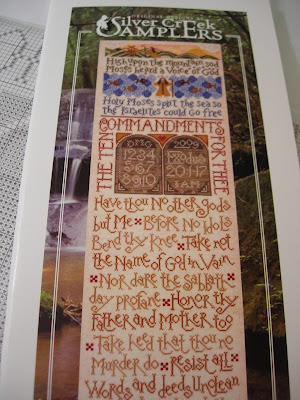 ORIGINAL DESIGNS
Silver Creek
SAMPLERS
High upon the mountain sod
Moses heard a Voice of God
Holy Moses split the sea so
the Israelites could go free
THE TEN COMMANDMENTS FOR THEE
1 2 3 4
5 6 7
8 9 10
2009
Exodus
20:1-17
Have thou No other gods
but Me Before No idols
Bend thy Knee Take not
the Name of God in Vain
Nor dare the sabbath
day profane Honor thy
Father and Mother too
Take heed that thou no
Murder do Resist all
Words and deeds unclean